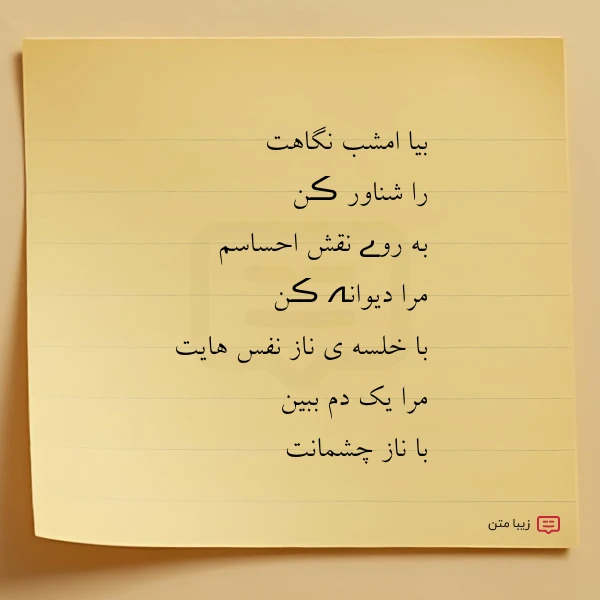 بیا امشب نگاهت
را شناور ڪن
به روے نقش احساسم
مرا دیوانہ ڪن
با خلسه ی ناز نفس هایت
مرا یک دم ببین
با ناز چشمانت
زیبا متن